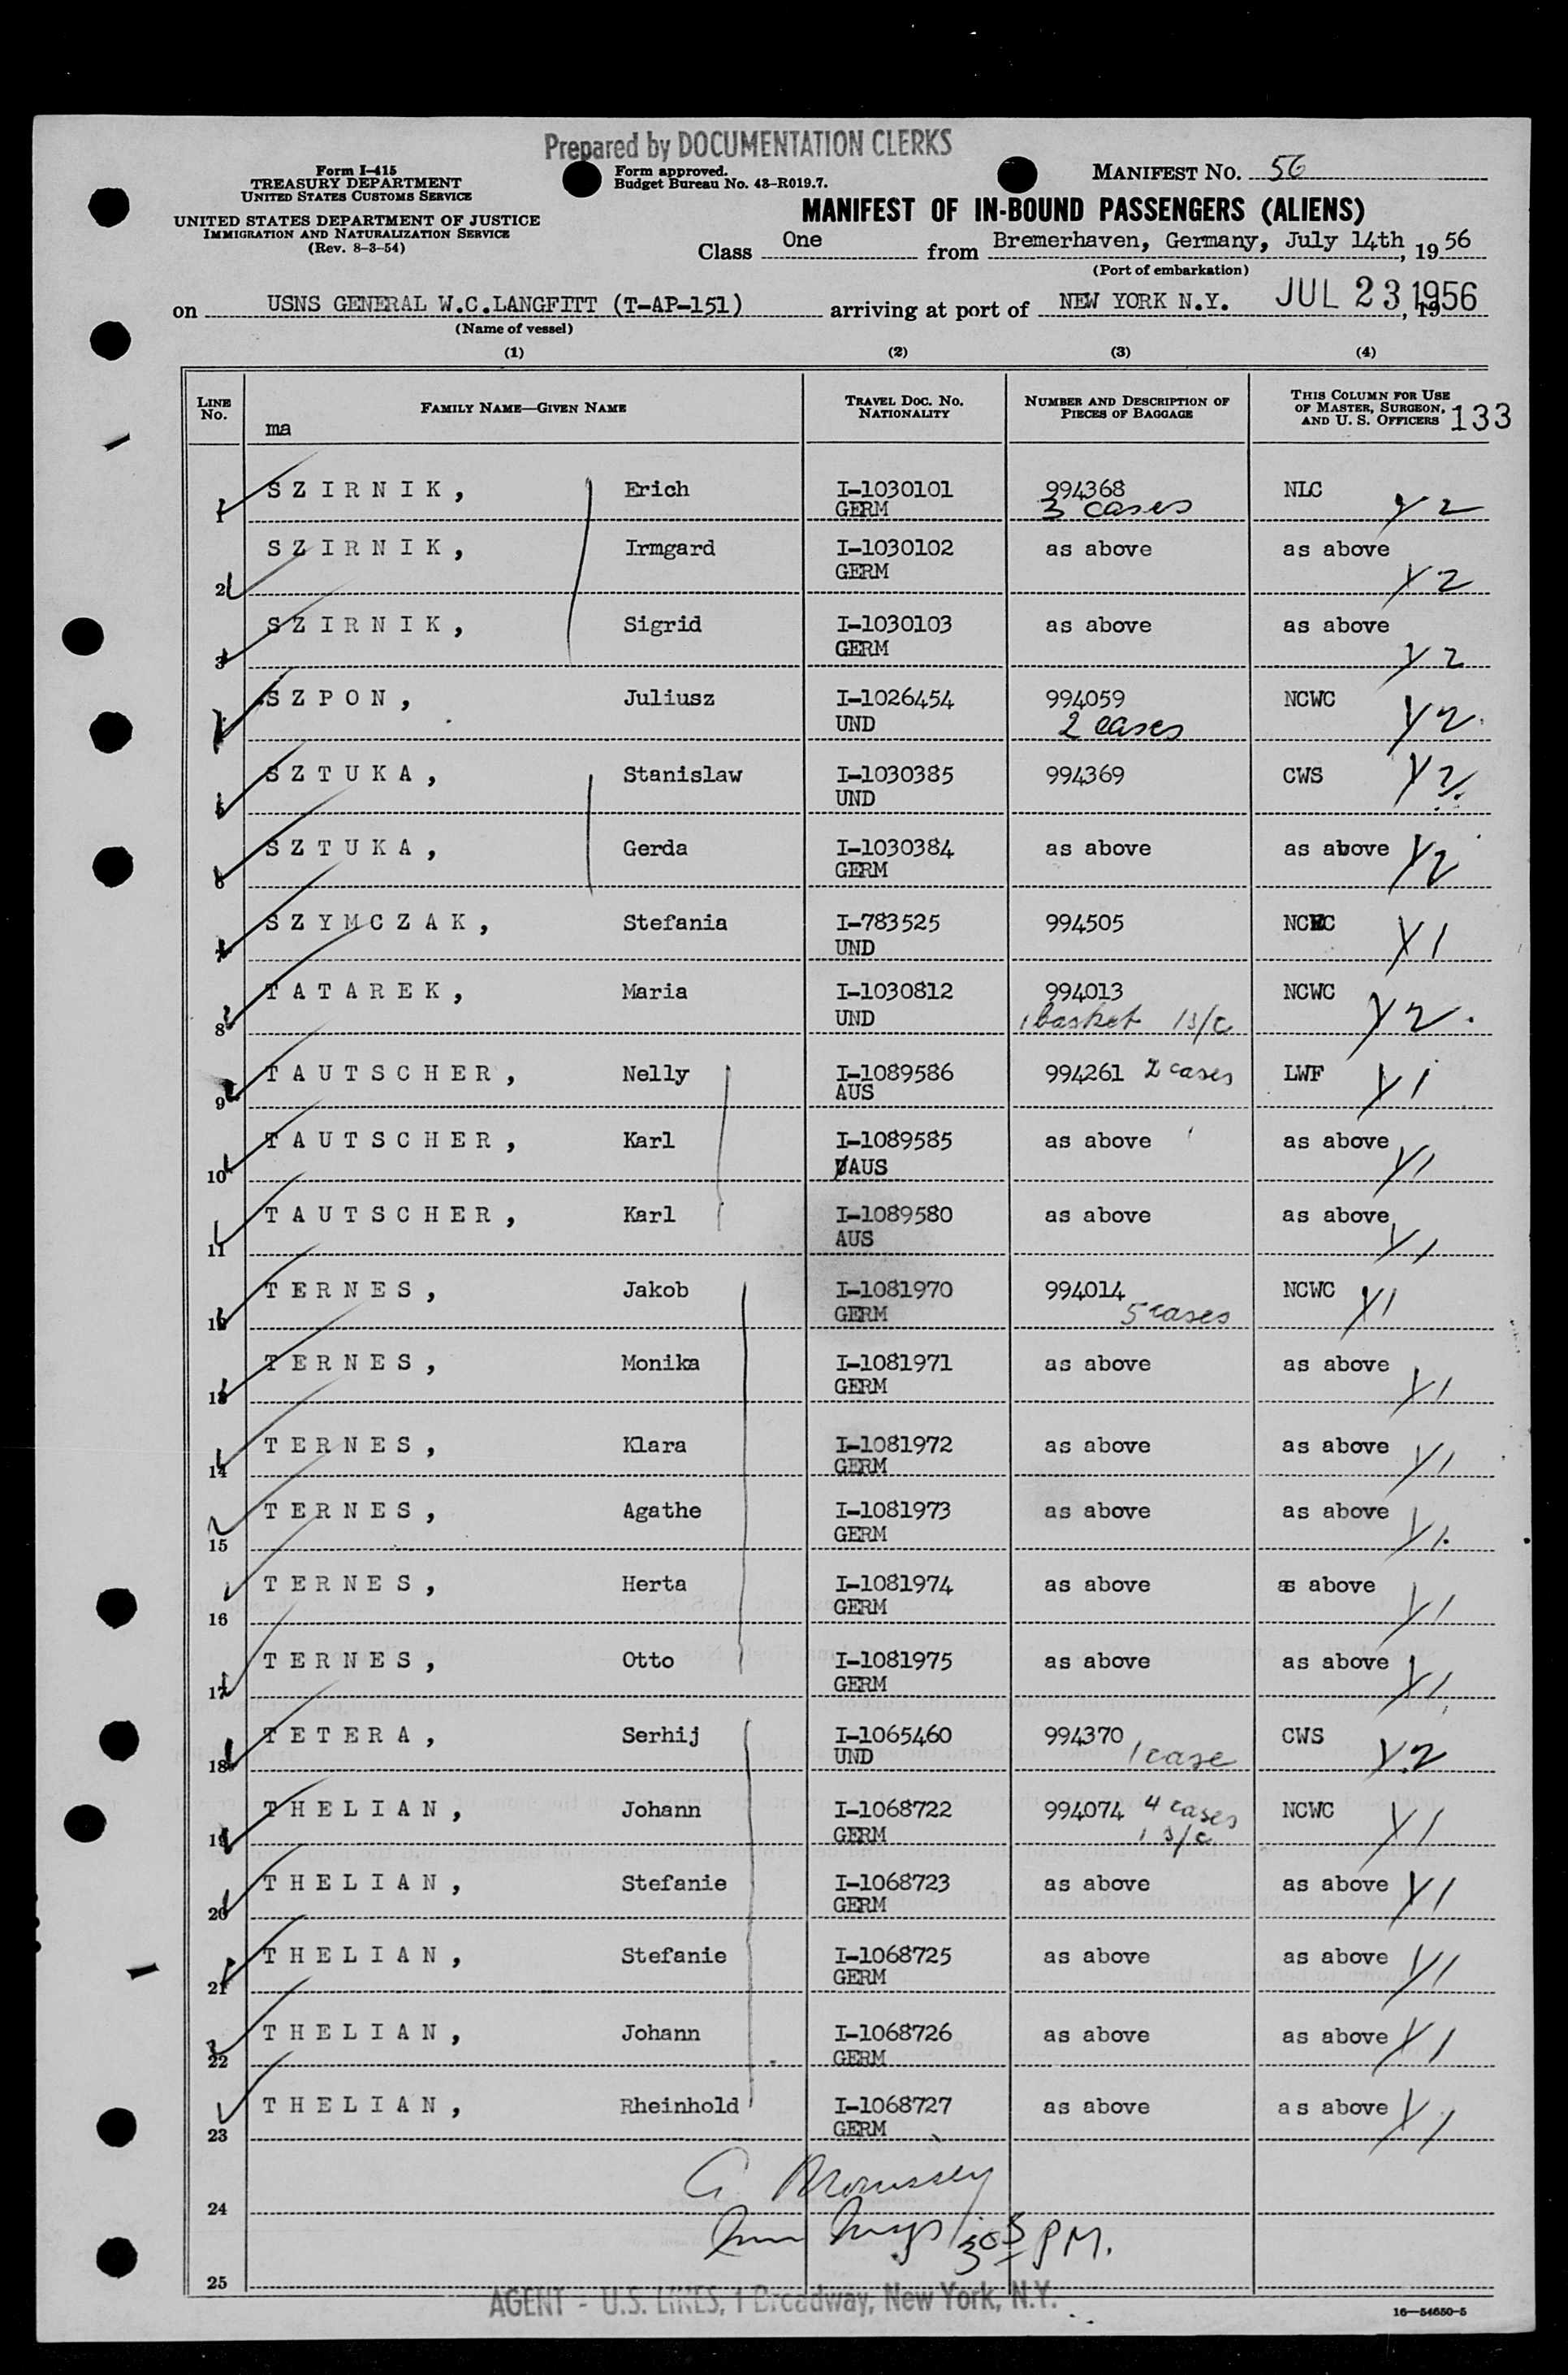 Prepared by DOCUMENTATION CLERKS
Form I-415
TREASURY DEPARTMENT
UNITED STATES CUSTOMS SERVICE
UNITED STATES DEPARTMENT OF JUSTICE
IMMIGRATION AND NATURALIZATION SERVICE
(Rev. 8-3-54)
Form approved.
Budget Bureau No. 43-R019.7.
MANIFEST NO. 56
MANIFEST OF IN-BOUND PASSENGERS (ALIENS)
Class One from Bremerhaven, Germany, July 14th, 1956
(Port of embarkation)
on USNS GENERAL W.C.LANGFITT (T-AP-151) arriving at port of NEW YORK N.Y. JUL 23 1956, 19
(Name of vessel)
(1) (2) (3) (4)
LINE NO. FAMILY NAME—GIVEN NAME TRAVEL DOC. NO. NATIONALITY NUMBER AND DESCRIPTION OF PIECES OF BAGGAGE THIS COLUMN FOR USE OF MASTER, SURGEON, AND U. S. OFFICERS 133
ma
1 SZIRNIK, Erich I-1030101 994368 NLC
GERM 3 cases Y2
SZIRNIK, Irmgard I-1030102 as above as above
2 GERM Y2
SZIRNIK, Sigrid I-1030103 as above as above
3 GERM Y2
SZPON, Juliusz I-1026454 994059 NCWC
UND 2 cases Y2
SZTUKA, Stanislaw I-1030385 994369 CWS Y2
5 UND
SZTUKA, Gerda I-1030384 as above as above Y2
6 GERM
SZYMCZAK, Stefania I-783525 994505 NCWC Y1
UND
TATAREK, Maria I-1030812 994013 NCWC
8 UND 1 basket 1 s/c Y2
TAUTSCHER, Nelly I-1089586 994261 2 cases LWF Y1
9 AUS
TAUTSCHER, Karl I-1089585 as above as above
10 AUS Y1
TAUTSCHER, Karl I-1089580 as above as above
11 AUS Y1
TERNES, Jakob I-1081970 994014 NCWC Y1
12 GERM 5 cases
TERNES, Monika I-1081971 as above as above
13 GERM Y1
TERNES, Klara I-1081972 as above as above
14 GERM Y1
TERNES, Agathe I-1081973 as above as above
15 GERM Y1
TERNES, Herta I-1081974 as above as above
16 GERM Y1
TERNES, Otto I-1081975 as above as above
17 GERM Y1
TETERA, Serhij I-1065460 994370 CWS
18 UND 1 case Y2
THELIAN, Johann I-1068722 994074 4 cases NCWC
19 GERM 1 s/c Y1
THELIAN, Stefanie I-1068723 as above as above Y1
20 GERM
THELIAN, Stefanie I-1068725 as above as above Y1
21 GERM
THELIAN, Johann I-1068726 as above as above Y1
22 GERM
THELIAN, Rheinhold I-1068727 as above as above Y1
23 GERM
24
PM.
25
AGENT - U.S. LINES, 1 Broadway, New York, N.Y.
16—54650-5